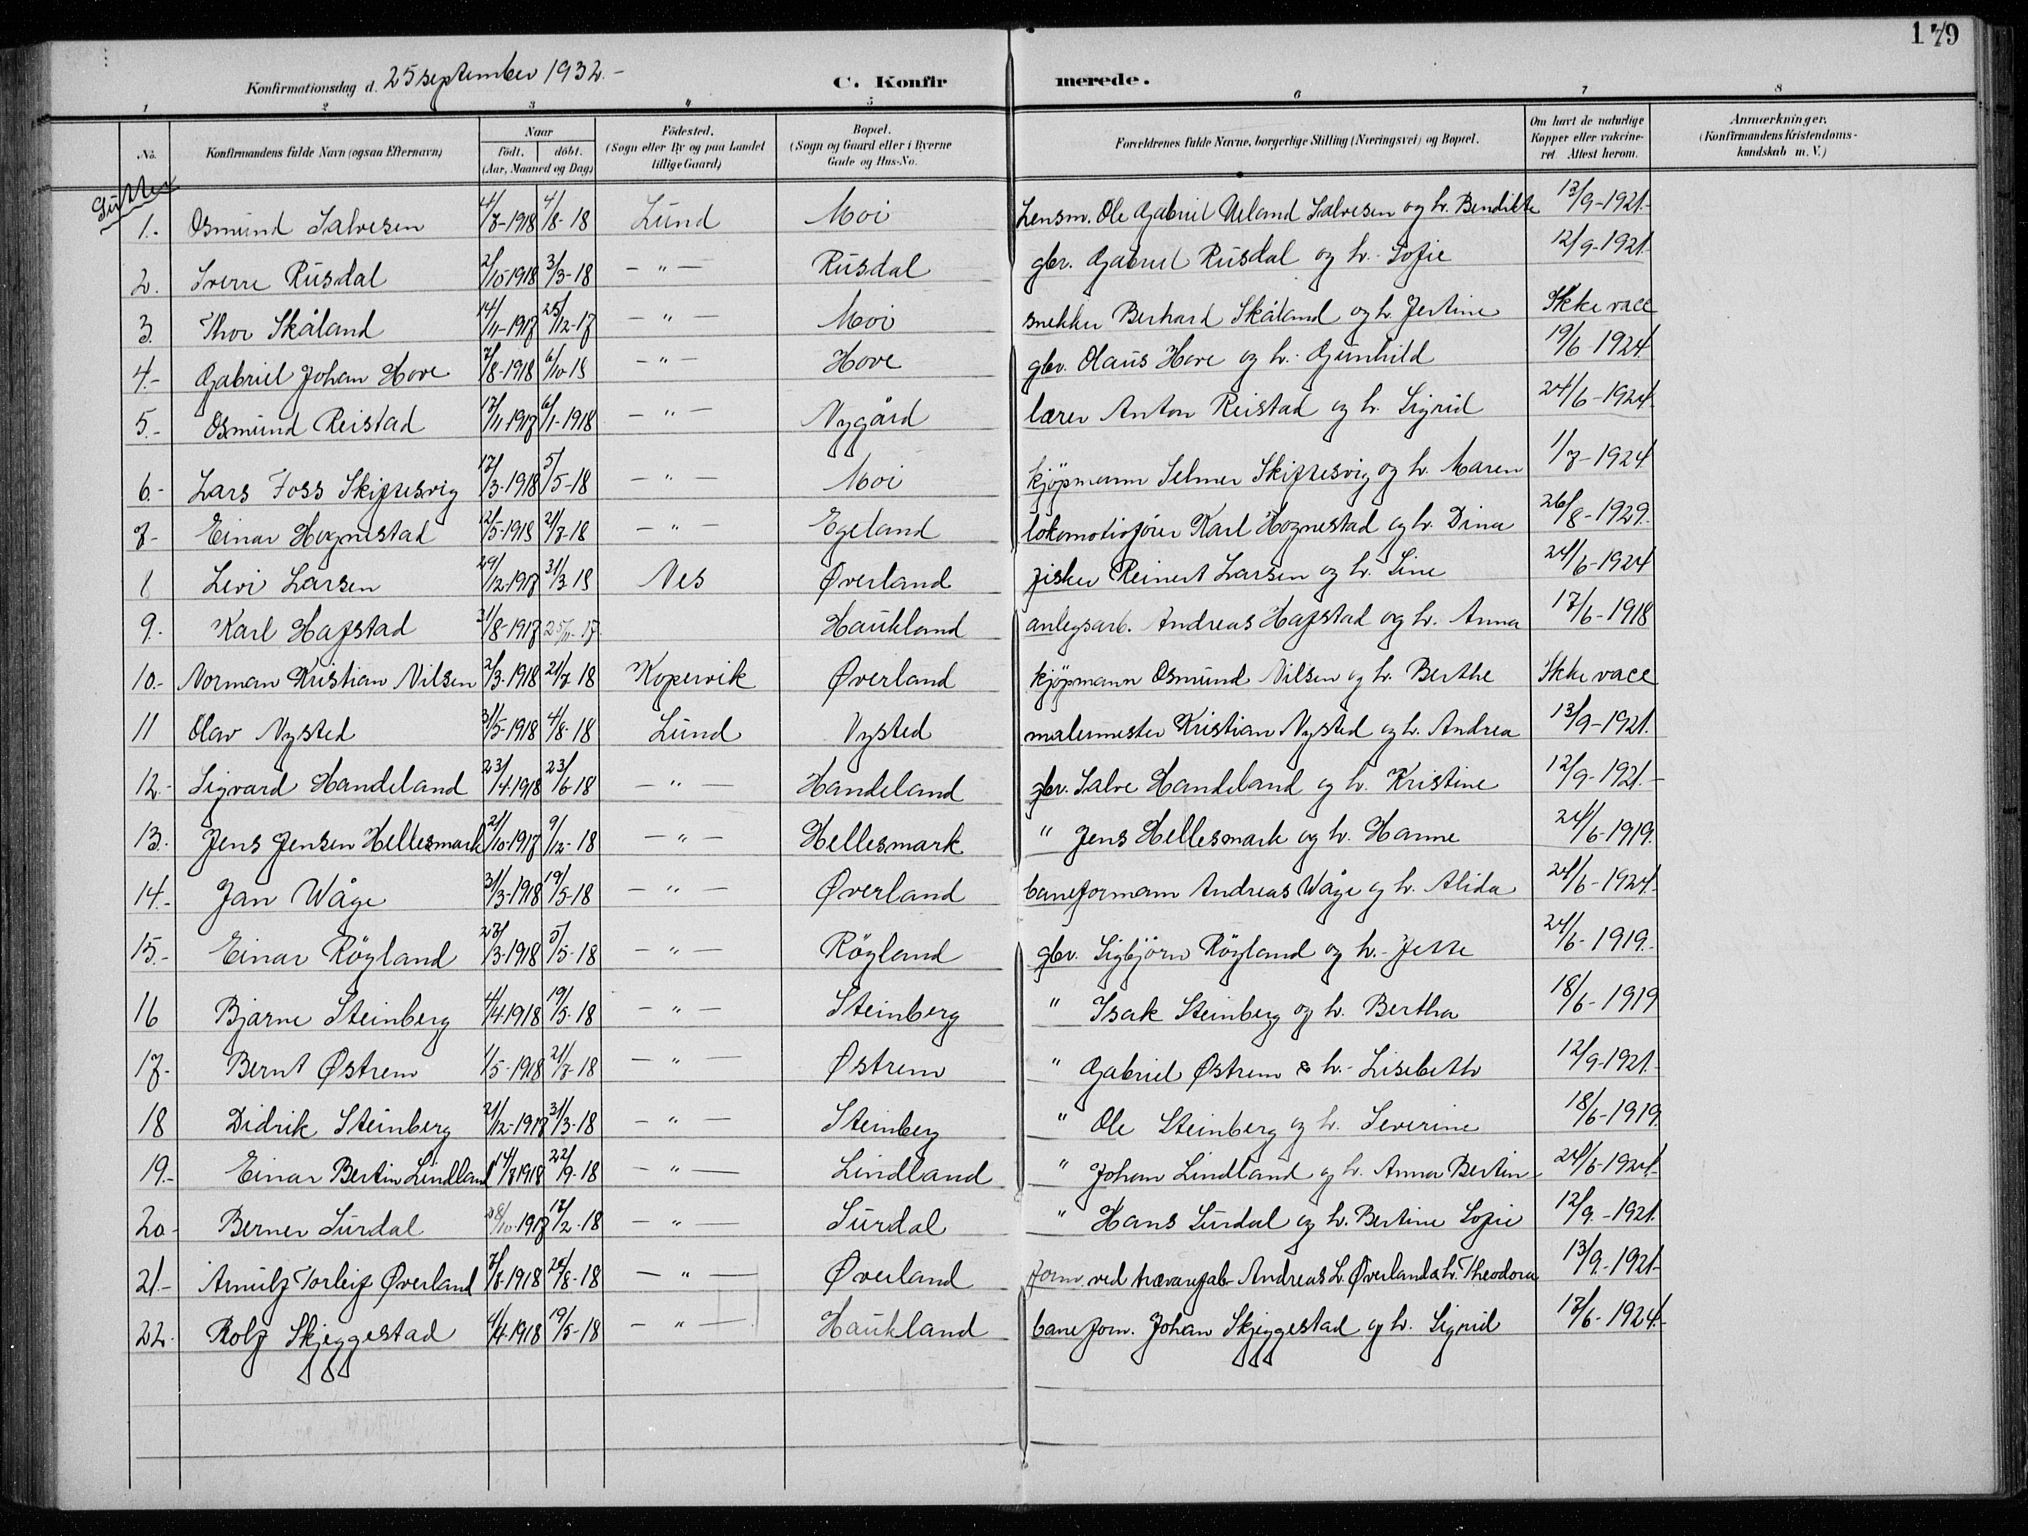 179
Konfirmationsdag d. 25 september 1932.-
C. Konfirmerede.
1 2 3 4 5 6 7 8
No.
Konfirmandens fulde Navn (ogsaa Efternavn)
Naar født. døbt. (Aar, Maaned og Dag)
Fødested. (Sogn eller By og paa Landet tillige Gaard)
Bopæl. (Sogn og Gaard eller i Byerne Gade og Hus-No.
Forældrenes fulde Navne, borgerlige Stilling (Næringsvei) og Bopæl.
Om havt de naturlige Kopper eller vakcineret Attest herom.
Anmærkninger. (Konfirmandens Kristendomskundskab m. V.)
Gutter
1.- Osmund Salvesen 4/7-1918 4/8-18 Lund Moi Lensm. Ole Gabriel Ueland Salvesen og h. Bendikte 13/9-1921.-
2. Sverre Rusdal 2/10-1918 3/3-18 - " - Rusdal gbr. Gabriel Rusdal og h. Sofie 12/9-1921.
3. Thor Skåland 14/11-1917 25/12-17 - " - Moi snekker Berhard Skåland og h. Jertine Ikke vacc
4.- Gabriel Johan Hove 7/8-1918 6/10-18 - " - Hove gbr. Olaus Hove og h. Gunhild 19/6-1924
5.- Osmund Reistad 17/11-1917 6/1-1918 - " - Nygård lærer Anton Reistad og h. Sigrid 24/6-1924.
6.- Lars Foss Skiftesvig 17/3-1918 5/5-18 - " - Moi kjøpmann Selmer Skiftesvig og h. Maren 1/7-1924
7- Einar Hognestad 12/5-1918 21/7-18 - " - Egeland lokomotivfører Karl Hognestad og h. Dina 26/8-1929.
8 Levi Larsen 29/12-1917 31/3-18 Nes Øverland fisker Reinert Larsen og h. Line 24/6-1924
9. Karl Hafstad 31/8-1917 25/11-17. Haukland anlegsarb. Andreas Hafstad og h. Anna 17/6-1918
10.- Norman Kristian Nilsen 2/3-1918 21/7-18 Kopervik Øverland kjøpmann Osmund Nilsen og h. Berthe Ikke vacc
11 Olav Nysted 31/5-1918 4/8-18 Lund Nysted malermester Kristian Nysted og h. Andrea 13/9-1921.
12.- Sigvard Handeland 23/4-1918 23/6-18 - " - Handeland gbr. Salve Handeland og h. Kristine 12/9-1921.-
13. Jens Jensen Hellesmark 21/10-1917 9/12-18 - " - Hellesmark " Jens Hellesmark og h. Hanne 24/6-1919.
14.- Jan Wåge 31/3-1918 19/5-18 - " - Øverland baneformann Andreas Wåge og h. Alida 24/6-1924.
15.- Einar Røyland 23/3-1918 5/5-18 - " - Røyland gbr. Sigbjørn Røyland og h.- Jette 24/6-1919.-
16 Bjarne Steinberg 4/4-1918 19/5-18 - " - Steinberg " Isak Steinberg og h. Bertha 18/6-1919
17.- Bernt Østrem 1/5-1918 21/7-18 - " - Østrem " Gabriel Østrem & h.- Lisebeth 12/9-1921.
18 Didrik Steinberg 21/12-1917 31/3-18 - " - Steinberg " Ole Steinberg og h. Severine 18/6-1919
19.- Einar Bertin Lindland 14/8 1918 22/9-18 - " - Lindland " Johan Lindland og h. Anna Bertin 24/6-1924.
20.- Berner Surdal 28/10-1917 17/2-18 - " - Surdal " Hans Surdal og h. Bertine Sofie 12/9-1921.
21.- Arnulf Torleif Øverland 7/8-1918 28/8-18 - " - Øverland form. ved trævarefab Andreas L. Øverland & h. Theodora 13/9-1921-
22. Rolf Skjeggestad 4/4-1918 19/5-18 - " - Haukland baneform. Johan Skjeggestad og h. Sigrid 17/6-1924.-